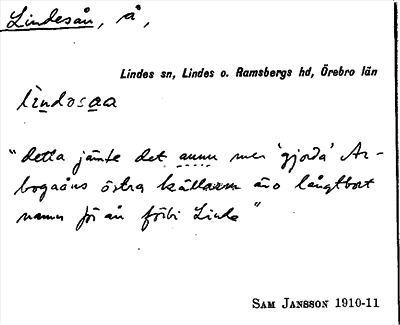 Lindesån, å,
Lindes sn, Lindes o. Ramsbergs hd, Örebro län
lìndosaa
"detta jämte det annu mer 'gjorda' Ar-
bogaåns östra källarm äro långtbort
namn för ån förbi Linde"
SAM JANSSON 1910-11